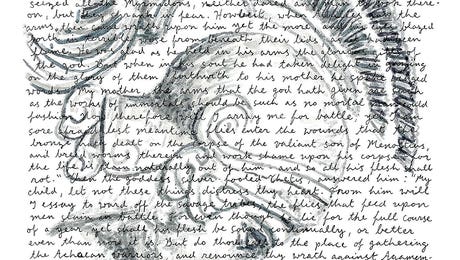 seized all the Myrmidons, neither dared any man to look there-
on, but they shrank in fear. Howbeit, when Achilles saw the
arms, then upon him yet the more, and his eyes blazed
forth in terrible from beneath their lids,
flame; he was glad as he held in his arms the glorious
the god. But when in his soul he had taken delight in
on the glory of them, forthwith to his mother he spake
words: My mother, the arms that the god hath given
as the works of immortals should be, such as no mortal could
fashion. Now therefore will I array me for battle; yet
sore afraid lest meantime flies enter the wounds that
bronze hath dealt on the corpse of the valiant son of Menoetius,
and breed worms therein, and work shame upon his corpse, for
the life is slain out of him and so all his flesh shall
rot. Then the goddess, silver-footed Thetis, answered him: My
child, let not these things distress thy heart. From him will
I essay to ward off the savage tribes, the flies that feed upon
men slain in battle. For even though he lie for the full course
of a year, yet shall his flesh be sound continually, or better
even than now it is. But do thou call to the place of gathering
the Achaean warriors, and renounce thy wrath against Agamem-